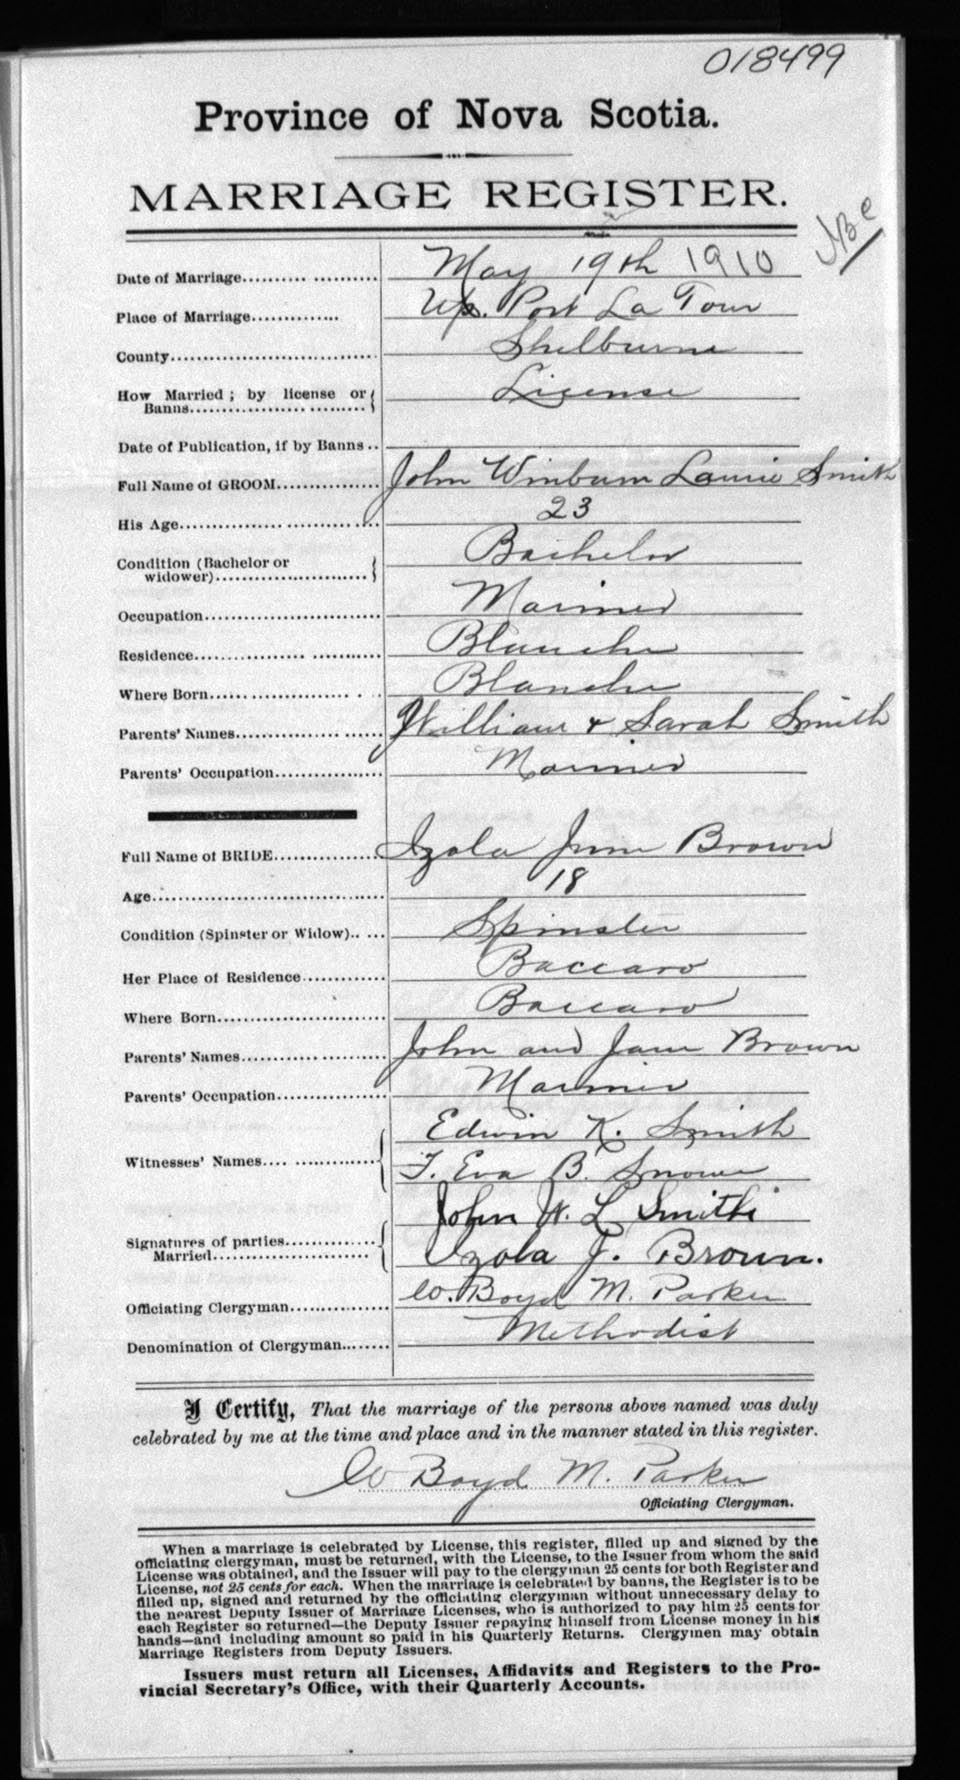 018499
Province of Nova Scotia.
MARRIAGE REGISTER.
Date of Marriage.......... .......... May 19th 1910
Place of Marriage............. Up. Port La Tour
County............................... Shelburne
How Married ; by license or
Banns.................. ......... License
Date of Publication, if by Banns ..
Full Name of GROOM................ John Winburn Laurie Smith
His Age............................... 23
Condition (Bachelor or
widower)....................... Bachelor
Occupation........................... Mariner
Residence................. ........... Blanche
Where Born...................... . . Blanche
Parents' Names................ ...... William & Sarah Smith
Parents' Occupation................. Mariner
Full Name of BRIDE................ Izola June Brown
Age................................... 18
Condition (Spinster or Widow).. ... Spinster
Her Place of Residence............. Baccaro
Where Born.......................... Baccaro
Parents' Names.............. ........ John and Jane Brown
Parents' Occupation................. Mariner
Edwin K. Smith
Witnesses' Names.... .............. T. Eva B. Snow
John W. L Smith
Signatures of parties..............
Married........................ Izola J. Brown.
Officiating Clergyman............... W. Boyd M. Parker
Denomination of Clergyman........ Methodist
I Certify, That the marriage of the persons above named was duly
celebrated by me at the time and place and in the manner stated in this register.
W Boyd M. Parker
Officiating Clergyman.
When a marriage is celebrated by License, this register, filled up and signed by the
officiating clergyman, must be returned, with the License, to the Issuer from whom the said
License was obtained, and the Issuer will pay to the clergyman 25 cents for both Register and
License, not 25 cents for each. When the marriage is celebrated by banns, the Register is to be
filled up, signed and returned by the officiating clergyman without unnecessary delay to
the nearest Deputy Issuer of Marriage Licenses, who is authorized to pay him 25 cents for
each Register so returned—the Deputy Issuer repaying himself from License money in his
hands—and including amount so paid in his Quarterly Returns. Clergymen may obtain
Marriage Registers from Deputy Issuers.
Issuers must return all Licenses, Affidavits and Registers to the Pro-
vincial Secretary's Office, with their Quarterly Accounts.